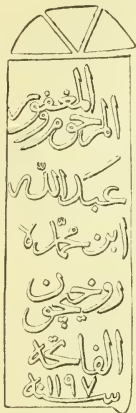 المرحوم و المغفور
عبد الله
ابن حمزه
روحيچون
الفاتحه
سنه ١١٩٧